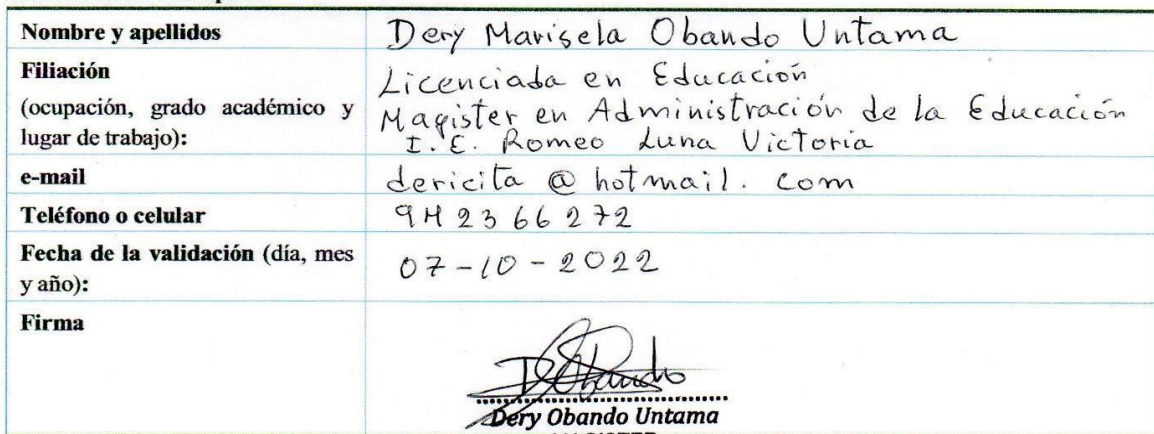 Nombre y apellidos
Dery Marisela Obando Untama
Filiación
(ocupación, grado académico y
lugar de trabajo):
Licenciada en Educación
Magister en Administración de la Educación
I.E. Romeo Luna Victoria
e-mail
dericita @ hotmail. com
Teléfono o celular
942366272
Fecha de la validación (día, mes
y año):
07-10-2022
Firma
DObando
Dery Obando Untama